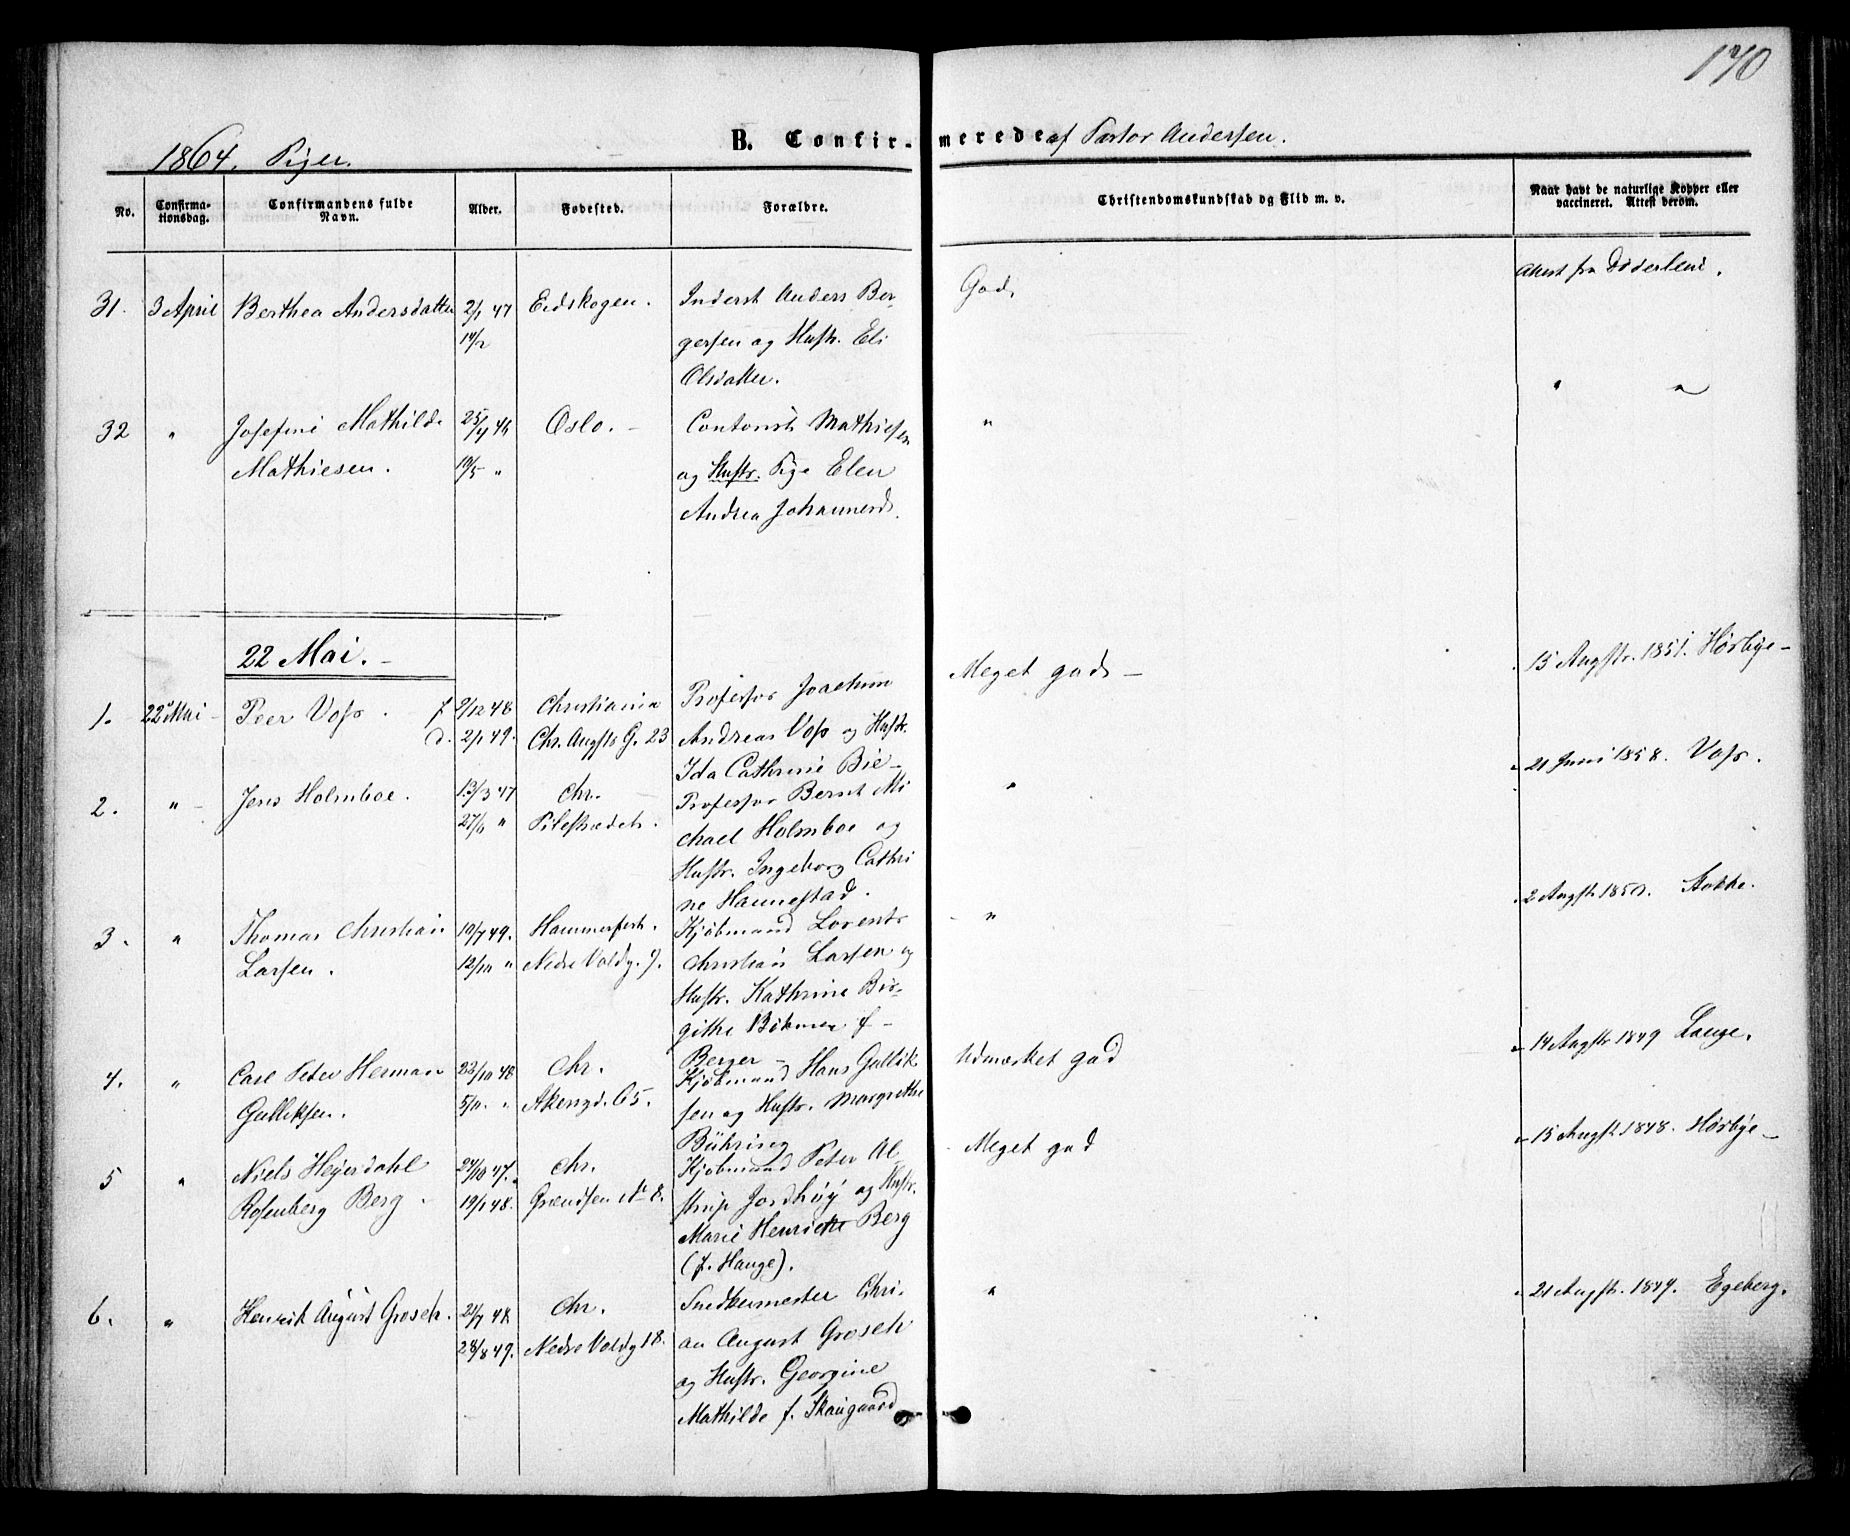 170
1864. Piger.
B. Confirmerede af Pastor Andersen.
No.
Confirmationsdag.
Confirmandens fulde Navn.
Alder.
Fødested.
Forældre.
Christendomskundskab og Flid m. v.
Naar havt de naturlige Kopper eller vaccineret. Attest derom.
31. 3 April Berthea Andersdatter 2/1 47 Eidskogen. Inderst Anders Ber- God, Attest fra Döderlein.
14/2 gersen og Hustr. Eli
Olsdatter.
32 " Josefine Mathilde 25/4 48 Oslo. - Contorist Mathiesen " " "
Mathiesen. 10/5 " og Hustr. Pige Elen
Andrea Johannesd.
22 Mai. -
1. 22 Mai - Peer Voss. f 9/12 48 Christiania Professor Joachim Meget god - 15 Augstr. 1851. Hørbye -
d. 2/1 49. Chr. Augsts G. 23 Andreas Voss og Hustr.
Ida Cathrine Bie -
2. " - Jens Holmboe. 13/3 47 Chr. Professor Bernt Mi " " 21 Juni 1858. Voss.
27/11 " Pilestrædet. chael Holmboe og
Hustr. Ingeborg Cathri
ne Hannestad.
3. " Thomas Christian 10/7 49. Hammerfest. Kjøbmand Lorents - " 2 Augstr. 1850. Stokke.
Larsen. 12/10 " Nedre Voldg. 7. Christian Larsen og
Hustr. Kathrine Bir-
githe f -
Berger -
4. " Carl Peter Herman 22/10 48 Chr. Kjøbmand Hans Gullik Udmærket god " 14 Augstr 1849 Lange.
Gulliksen. 5/11. " Akersgd. 65. sen og Hustr. Margrethe
Bühring
5 " Niels Heyerdahl 24/10 47. Chr. Kjøbmand Peter Al- - Meget god " 15 Augst. 1848. Hørbye -
Rosenberg Berg. 19/1 48. Grændsen No 8. strup Jordhøy og Hustr.
Marie Henriette Berg
(f. Hauge).
6. " Henrik August Grosch. 21/7 48 Chr. Snedkermester Chri- " " 21 Augstr. 1849. Egeberg.
28/8 49. Nedre Voldg 18. an August Grosch
og Hustr. Georgine
Mathilde f. Skaugaard